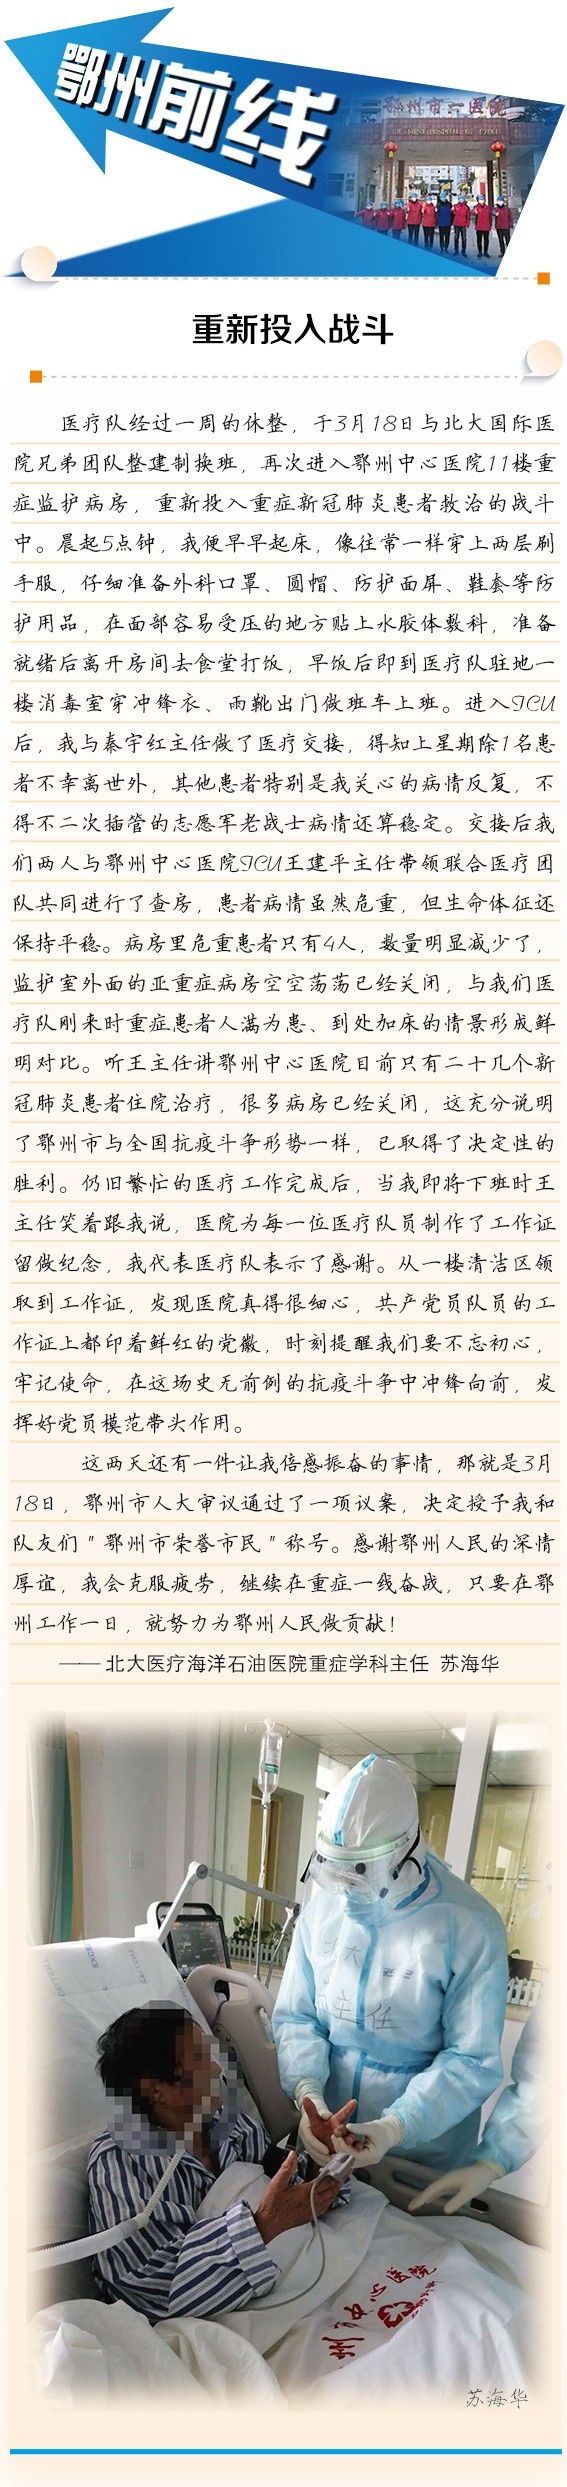 鄂州前线
鄂州市一医院
重新投入战斗
医疗队经过一周的休整，于3月18日与北大国际医
院兄弟团队整建制换班，再次进入鄂州中心医院11楼重
症监护病房，重新投入重症新冠肺炎患者救治的战斗
中。晨起5点钟，我便早早起床，像往常一样穿上两层刷
手服，仔细准备外科口罩、圆帽、防护面屏、鞋套等防
护用品，在面部容易受压的地方贴上水胶体敷料，准备
就绪后离开房间去食堂打饭，早饭后即到医疗队驻地一
楼消毒室穿冲锋衣、雨靴出门做班车上班。进入ICU
后，我与秦宇红主任做了医疗交接，得知上星期除1名患
者不幸离世外，其他患者特别是我关心的病情反复，不
得不二次插管的志愿军老战士病情还算稳定。交接后我
们两人与鄂州中心医院ICU王建平主任带领联合医疗团
队共同进行了查房，患者病情虽然危重，但生命体征还
保持平稳。病房里危重患者只有4人，数量明显减少了，
监护室外面的亚重症病房空空荡荡已经关闭，与我们医
疗队刚来时重症患者人满为患、到处加床的情景形成鲜
明对比。听王主任讲鄂州中心医院目前只有二十几个新
冠肺炎患者住院治疗，很多病房已经关闭，这充分说明
了鄂州市与全国抗疫斗争形势一样，已取得了决定性的
胜利。仍旧繁忙的医疗工作完成后，当我即将下班时王
主任笑着跟我说，医院为每一位医疗队员制作了工作证
留做纪念，我代表医疗队表示了感谢。从一楼清洁区领
取到工作证，发现医院真得很细心，共产党员队员的工
作证上都印着鲜红的党徽，时刻提醒我们要不忘初心，
牢记使命，在这场史无前例的抗疫斗争中冲锋向前，发
挥好党员模范带头作用。
这两天还有一件让我倍感振奋的事情，那就是3月
18日，鄂州市人大审议通过了一项议案，决定授予我和
队友们＂鄂州市荣誉市民＂称号。感谢鄂州人民的深情
厚谊，我会克服疲劳，继续在重症一线奋战，只要在鄂
州工作一日，就努力为鄂州人民做贡献！
—— 北大医疗海洋石油医院重症学科主任 苏海华
北大
主任
州中心医院
苏海华